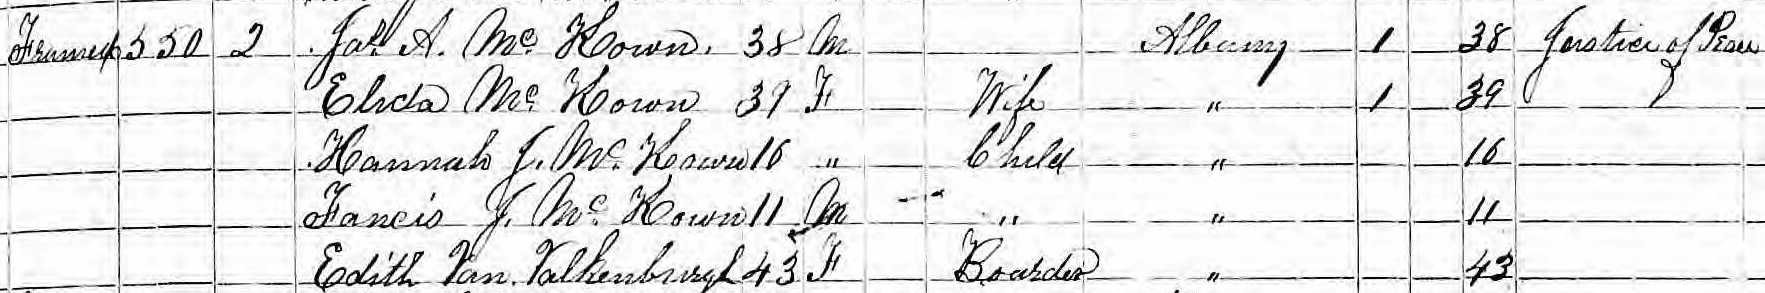 Framed 550 2 Jas. A. Mc. Kown. 38 M Albany 1 38 Justice of Peace
Elida Mc. Kown 39 F Wife " 1 39
Hannah J. Mc. Kown 16 " Child " 16
Fancis J. Mc. Kown 11 M " " 11
Edith Van. Valkenburgh 43 F Boarder " 43